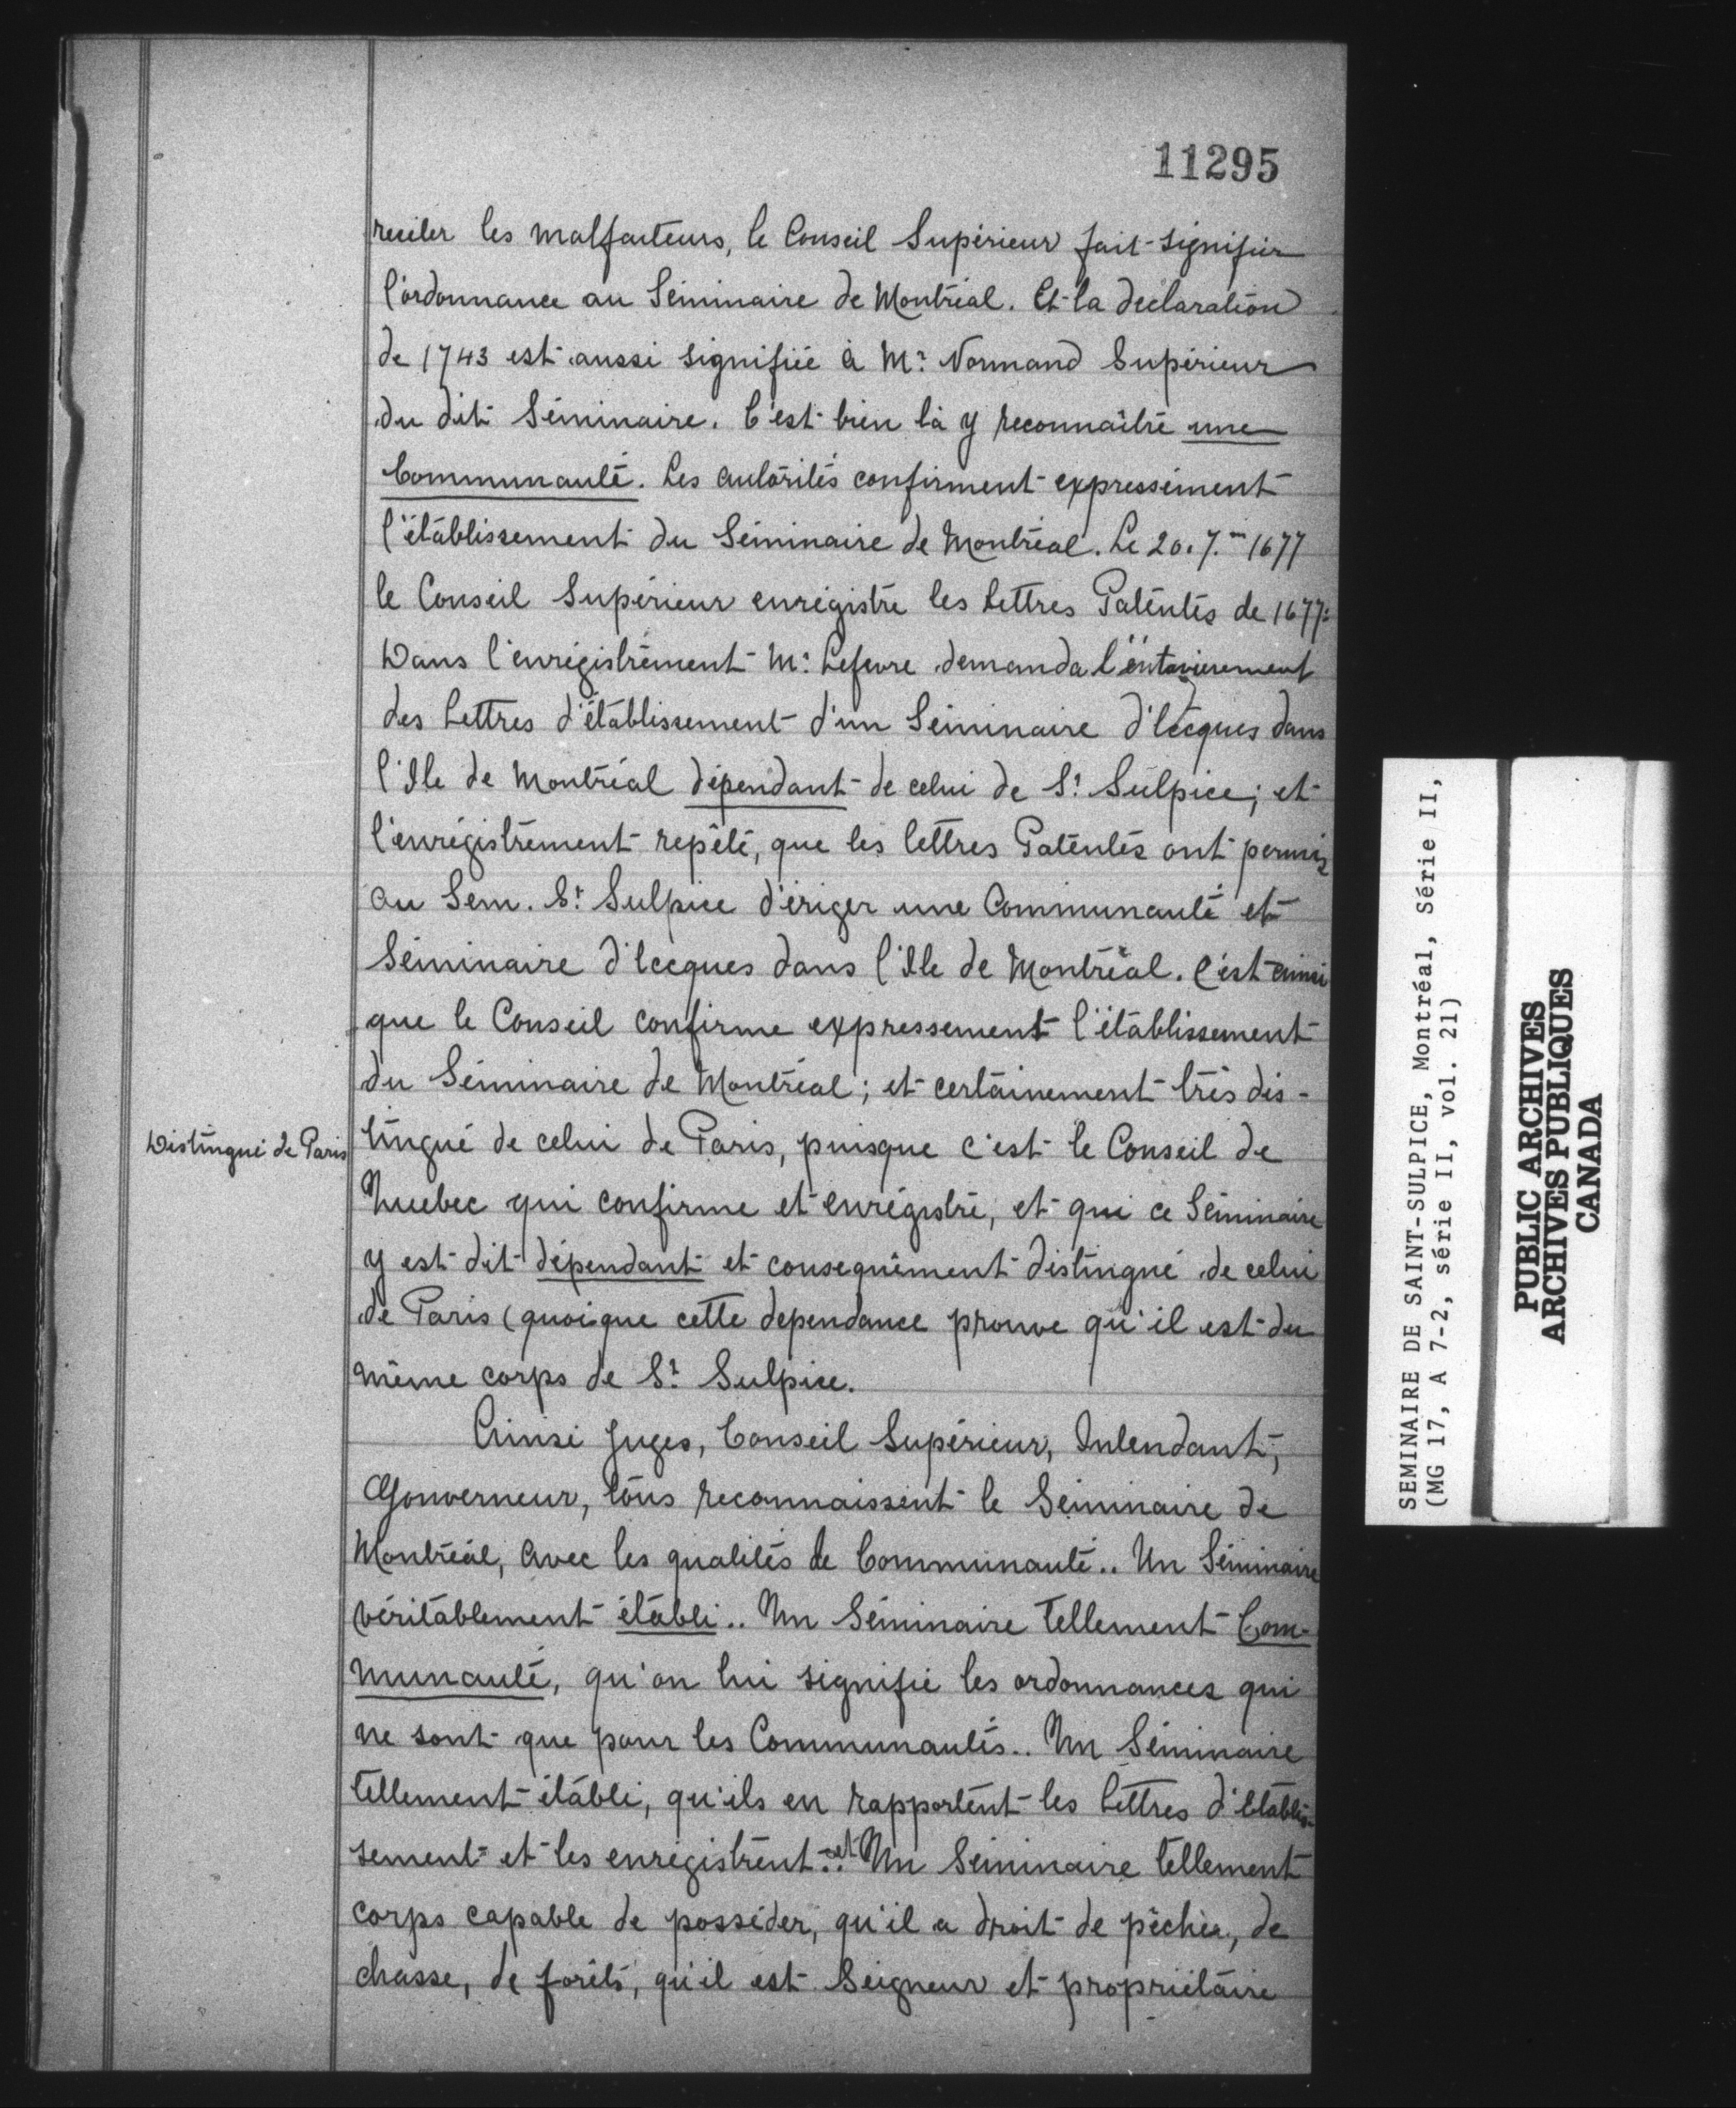 11295
receler les malfaiteurs, le Conseil Supérieur fait signifier
l'ordonnance au Séminaire de Montréal. Et la déclaration
de 1743 est aussi signifiée à Mr. Normand Supérieur
du dit Séminaire. C'est bien là y reconnaître une
Communauté. Les autorités confirment expressément
l'établissement du Séminaire de Montréal. Le 20. 7.m 1677
le Conseil Supérieur enrégistre les Lettres Patentes de 1677:
Dans l'enrégistrement Mr. Lefevre demanda
des Lettres d'établissement d'un Séminaire d'Eccques dans
l'Ile de Montréal dépendant de celui de St. Sulpice; et
l'enrégistrement repète, que les lettres Patentes ont permis
au Sem. St. Sulpice d'ériger une Communauté et
Séminaire d'Eccques dans l'Ile de Montréal. C'est ainsi
que le Conseil confirme expressement l'établissement
du Séminaire de Montréal; et certainement très dis-
Distingué de Paris
tingué de celui de Paris, puisque c'est le Conseil de
Quebec qui confirme et enrégistre, et que ce Séminaire
y est dit dépendant et conséquement distingué de celui
de Paris (quoique cette dependance prouve qu'il est du
même corps de St. Sulpice.
Ainsi Juges, Conseil Supérieur, Intendant,
Gouverneur, tous reconnaissent le Séminaire de
Montréal, avec les qualités de Communauté.. Un Séminaire
véritablement établi.. Un Séminaire tellement Com-
munauté, qu'on lui signifie les ordonnances qui
ne sont que pour les Communautés.. Un Séminaire
tellement établi, qu'ils en rapportent les Lettres d'Etablis-
sement et les enregistrent.. et Un Séminaire tellement
corps capable de posséder, qu'il a droit de pêche, de
chasse, de forêts, qu'il est Seigneur et propriétaire
SEMINAIRE DE SAINT-SULPICE, Montréal, Série II,
(MG 17, A 7-2, série II, vol. 21)
PUBLIC ARCHIVES
ARCHIVES PUBLIQUES
CANADA